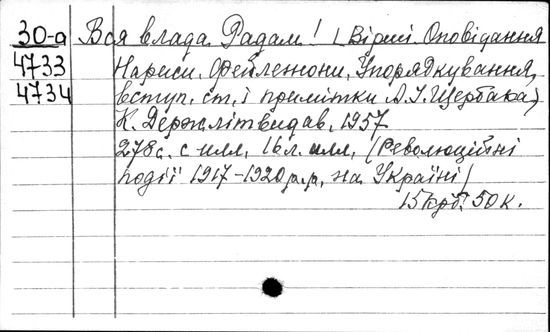 30-а Вся влада Радам! (Вірші. Оповідання
4733 Нариси. Фейлетони. Упорядкування,
4734 вступ. ст. і примітки А.І. Щербака)
К. Держлітвидав, 1957
278с. с илл, 16 л. илл, (Революційні
події 1917-1920 р.р. на Україні)
15 крб. 50 к.